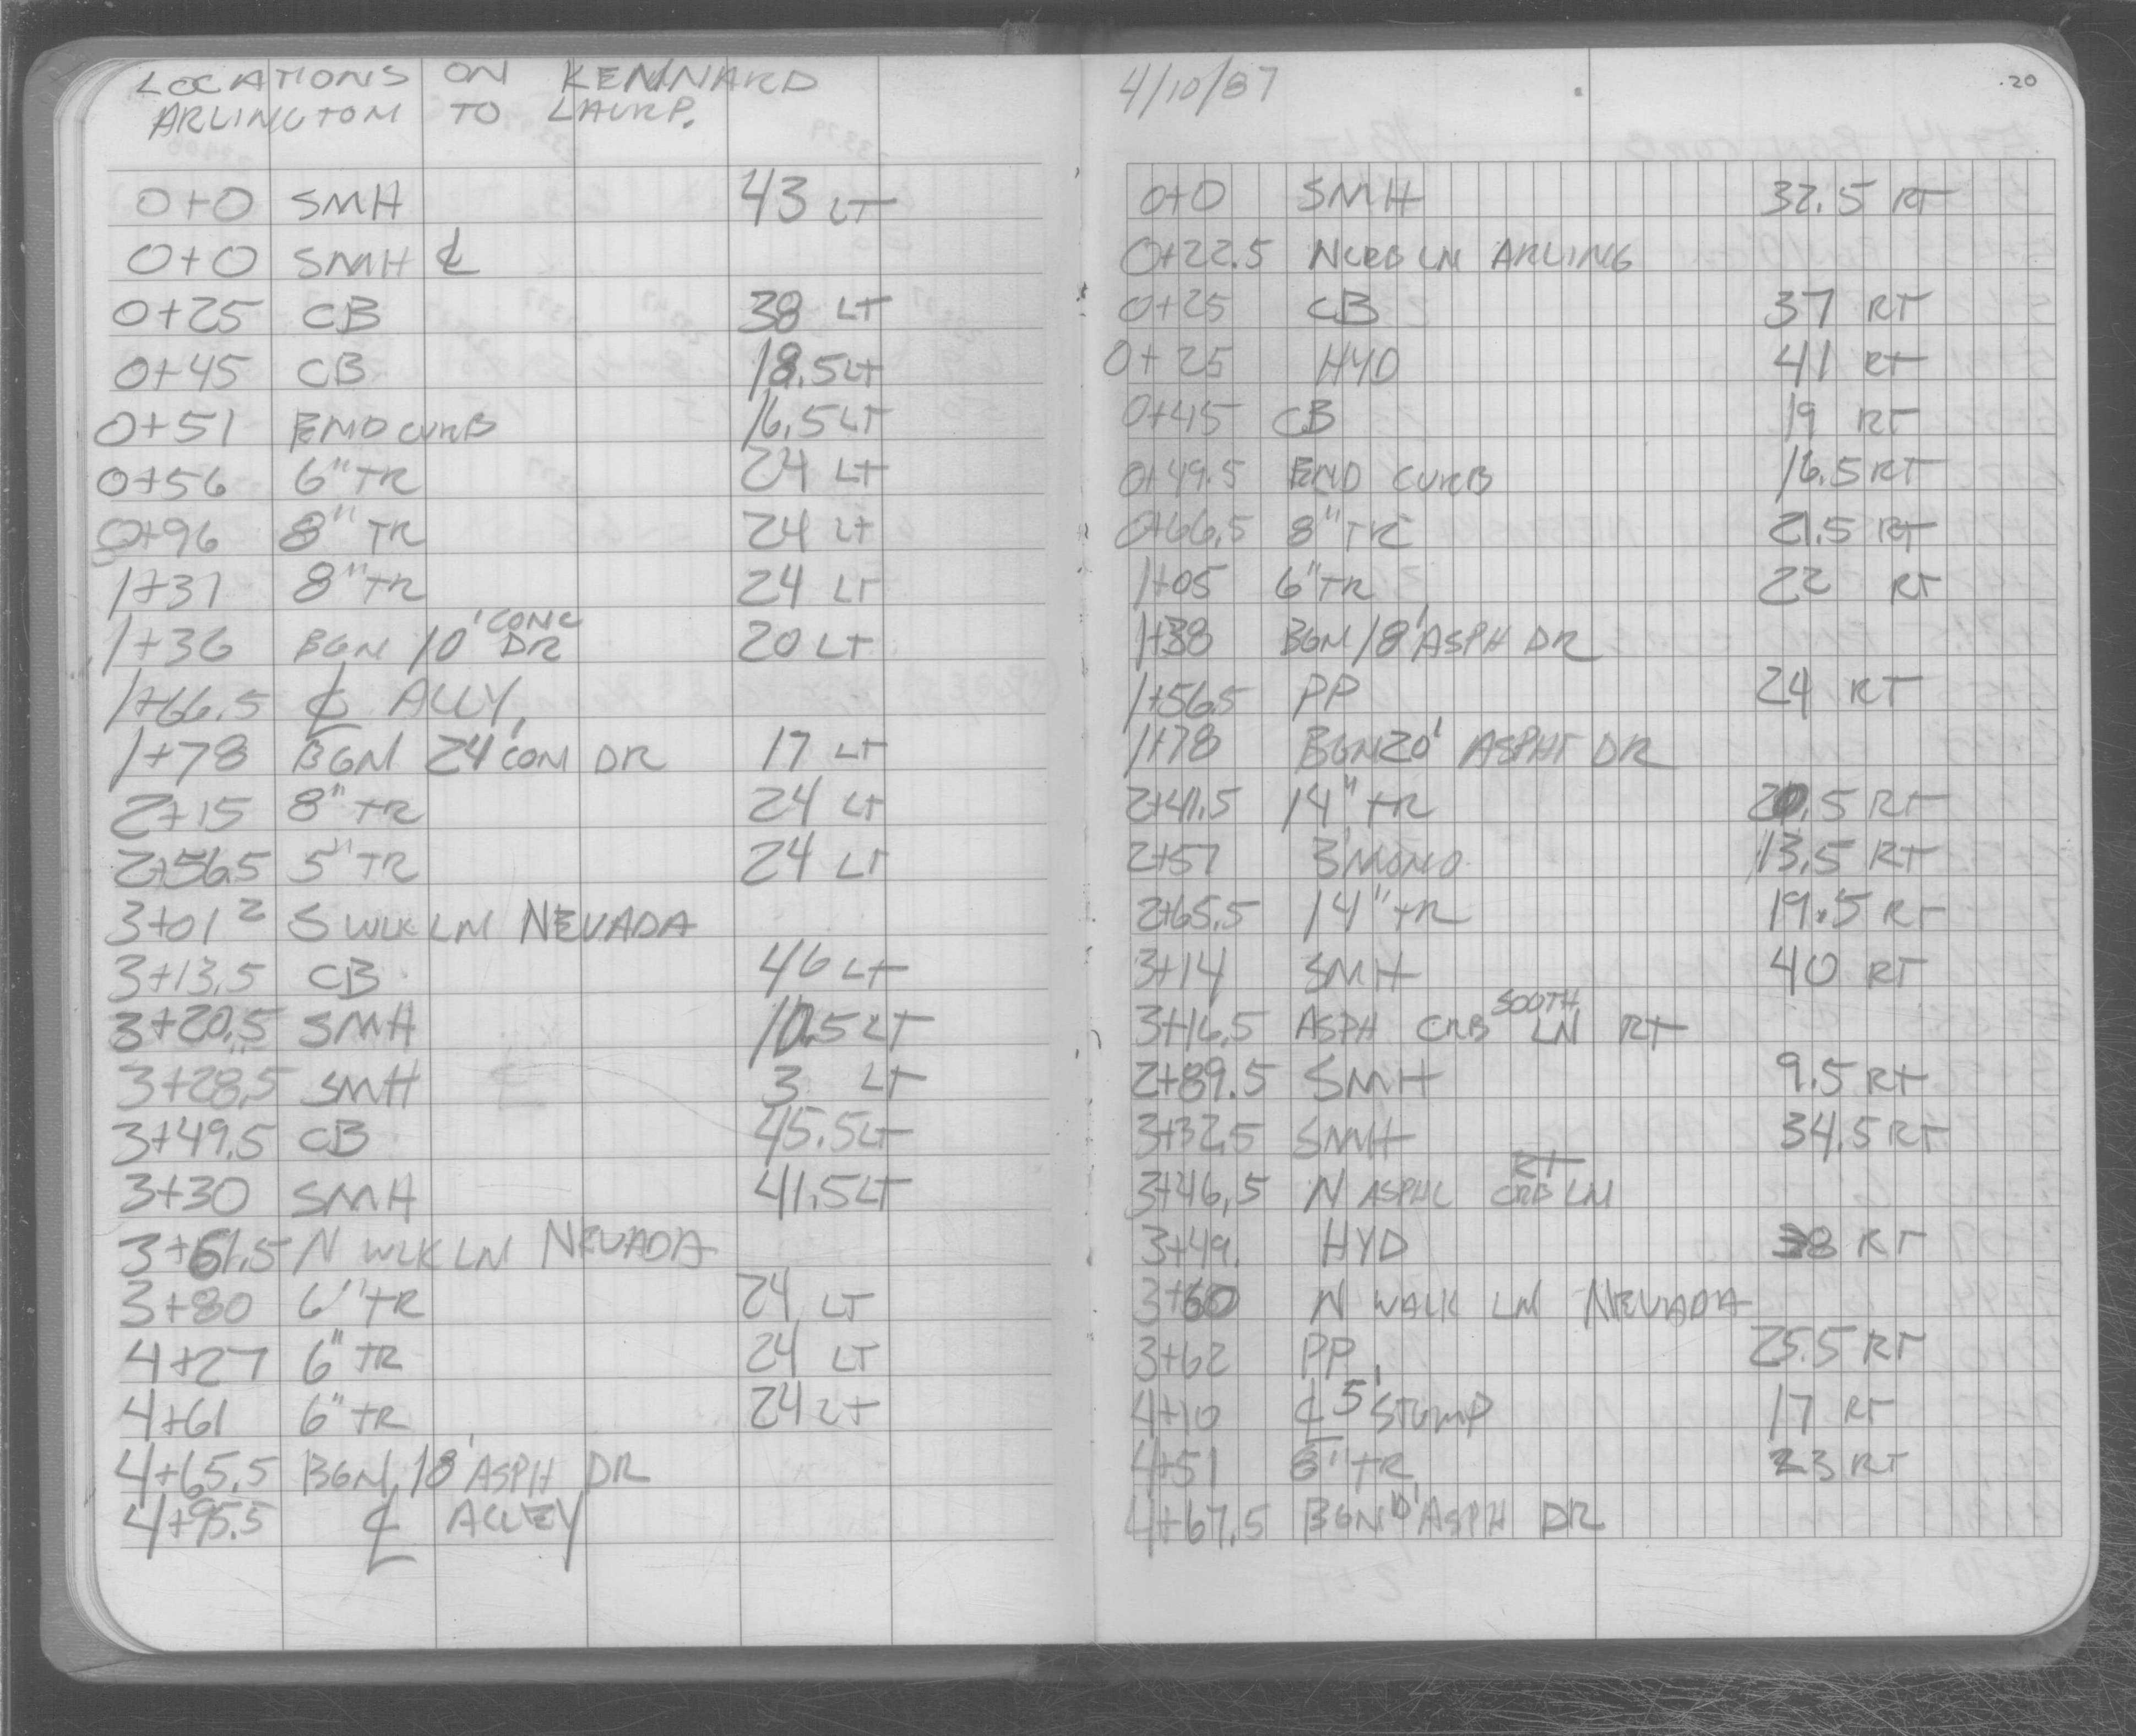 LOCATIONS ON KENNARD
ARLINGTON TO LAURP.
0+0 SMH 43 LT
0+0 SMH ℄
0+25 CB 38 LT
0+45 CB 18.5 LT
0+51 END CURB 16.5 LT
0+56 6" TR 24 LT
0+96 8" TR 24 LT
1+31 8" TR 24 LT
1+36 BGN 10' CONC DR 20 LT
1+66.5 ℄ ALLY
1+78 BGN 24' CON DR 17 LT
2+15 8" TR 24 LT
2+56.5 5" TR 24 LT
3+01² S WLK LN NEVADA
3+13.5 CB 46 LT
3+20.5 SMH 10.5 LT
3+28.5 SMH 3 LT
3+49.5 CB 45.5 LT
3+30 SMH 41.5 LT
3+61.5 N WLK LN NEVADA
3+80 6" TR 24 LT
4+27 6" TR 24 LT
4+61 6" TR 24 LT
4+65.5 BGN 18' ASPH DR
4+95.5 ℄ ALLEY
4/10/87 20
0+0 SMH 32.5 RT
0+22.5 N CRB LN ARLING
0+25 CB 37 RT
0+25 HYD 41 RT
0+45 CB 19 RT
0+49.5 END CURB 16.5 RT
0+66.5 8" TR 21.5 RT
1+05 6" TR 22 RT
1+38 BGN 18' ASPH DR
1+56.5 PP 24 RT
1+78 BGN 20' ASPHT DR
2+41.5 14" TR 20.5 RT
2+57 3' MONO 13.5 RT
2+65.5 14" TR 19.5 RT
3+14 SMH 40 RT
3+16.5 ASPH CRB SOUTH LN RT
2+89.5 SMH 9.5 RT
3+32.5 SMH 34.5 RT
3+46.5 N ASPHL RT CRB LN
3+49. HYD 38 RT
3+60 N WALK LN NEVADA
3+62 PP 25.5 RT
4+10 ℄ 5' STUMP 17 RT
4+51 8" TR 23 RT
4+67.5 BGN 10' ASPH DR